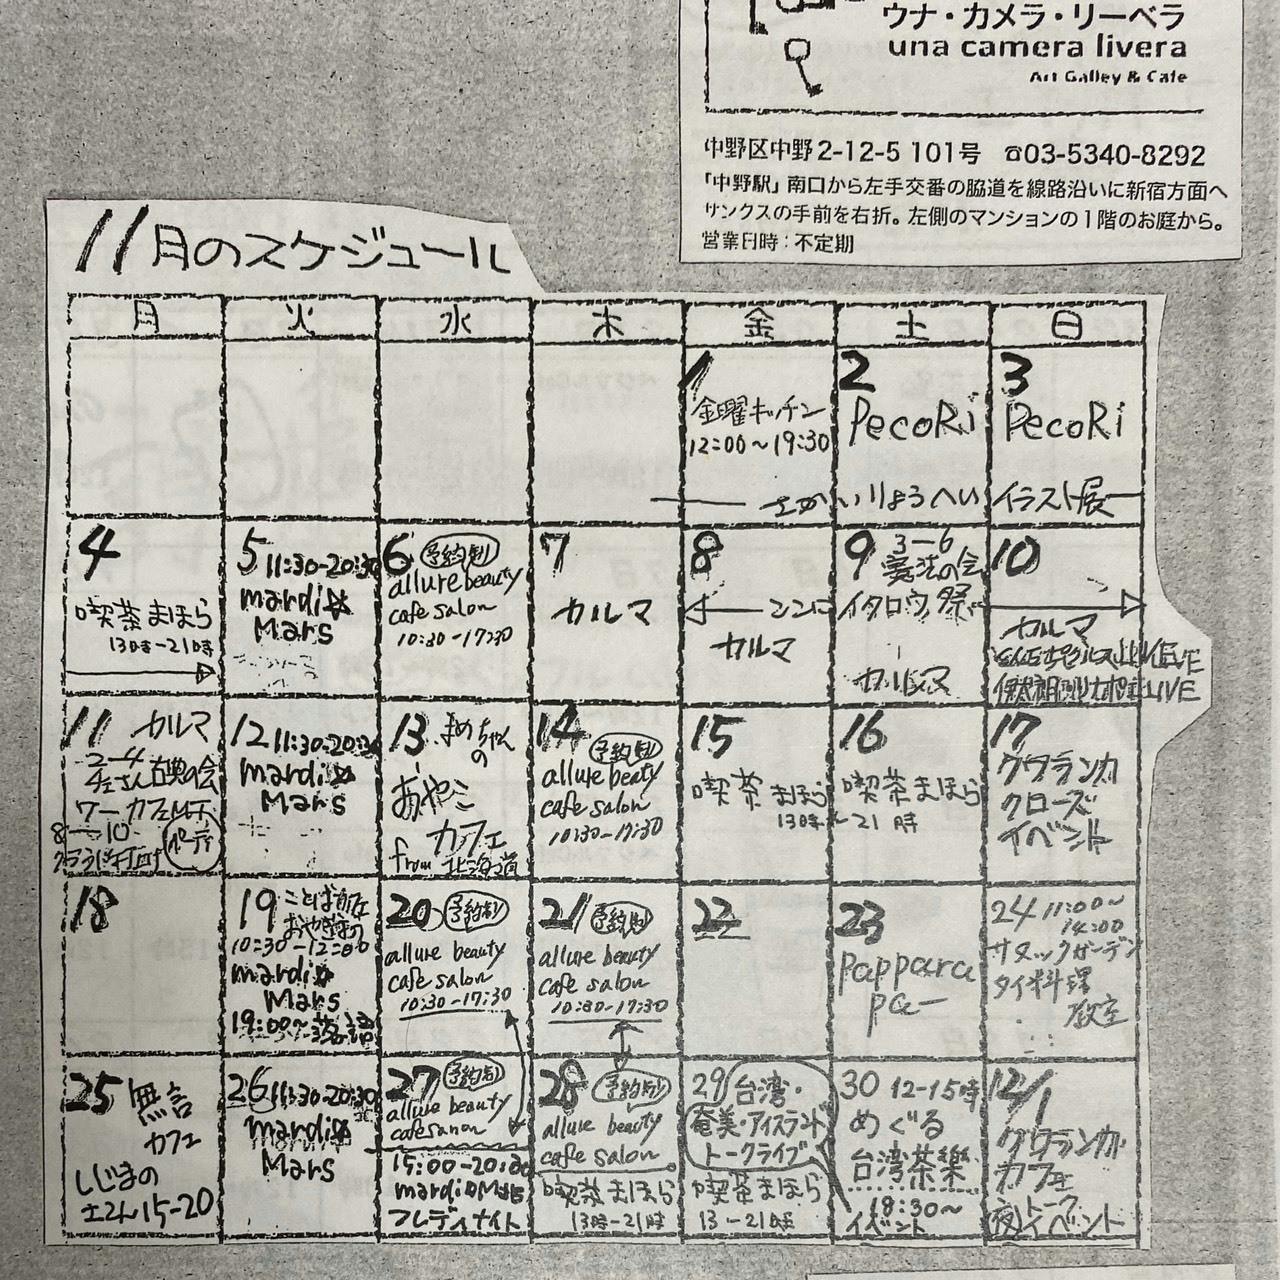 ウナ・カメラ・リーベラ
una camera livera
Art Galley & Cafe
中野区中野2-12-5 101号 ☎03-5340-8292
「中野駅」南口から左手交番の脇道を線路沿いに新宿方面へ
サンクスの手前を右折。左側のマンションの1階のお庭から。
営業日時:不定期
11月のスケジュール
月 火 水 木 金 土 日
1
金曜キッチン
12:00〜19:30
2
PecoRi
3
PecoRi
さかいりょうへい イラスト展
4
喫茶まほら
13時-21時
5 11:30-20:30
mardi☆
Mars
6 予約制
allure beauty
cafe salon
10:30-17:30
7
カルマ
8
カルマ
9 3-6
の会
イタロウ祭
カルマ
10
カルマ
LIVE
LIVE
11 カルマ
2-4
古典の会
8-10
12 11:30-20:30
mardi☆
Mars
13 まめちゃん
の
あやこ
カフェ
from 北海道
14 予約制
allure beaty
cafe salon
10:30-17:30
15
喫茶まほら
16
喫茶まほら
13時〜21時
17
クワランカ
クローズ
イベント
18
19 ことば
10:30-12:00
mardi☆
Mars
19:00〜落語
20 予約制
allure beauty
cafe salon
10:30-17:30
21 予約制
allure beauty
cafe salon
10:30-17:30
22
23
Pappara
pa-
24 11:00〜
14:00
タイ料理
教室
25 無言
カフェ
しじまの
15-20
26 11:30-20:30
mardi☆
Mars
27 予約制
allure beauty
cafe
15:00-20:30
mardi☆Mars
フレディナイト
28 予約制
allure beauty
cafe salon
喫茶まほら
13時-21時
29 台湾・
奄美・アイスランド
トークライブ
喫茶まほら
13-21時
30 12-15時
めぐる
台湾茶樂
18:30〜
イベント
12/1
クワランカ
カフェ
夜トーク
イベント